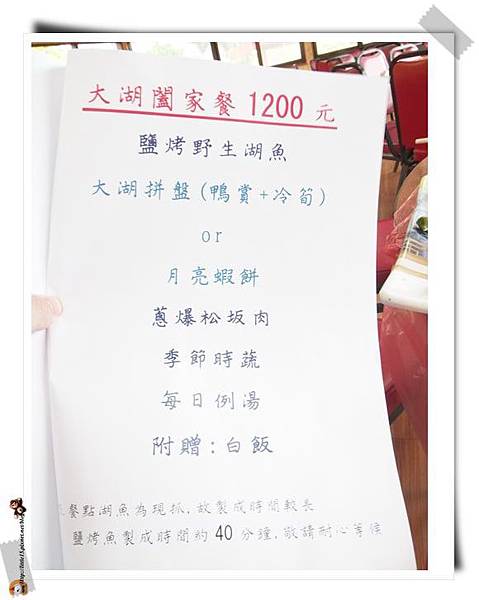 大湖闔家餐 1200 元
鹽烤野生湖魚
大湖拼盤(鴨賞+冷筍)
or
月亮蝦餅
蔥爆松坂肉
季節時蔬
每日例湯
附贈:白飯
餐點湖魚為現抓,故製成時間較長
鹽烤魚製成時間約 40 分鐘,敬請耐心等候